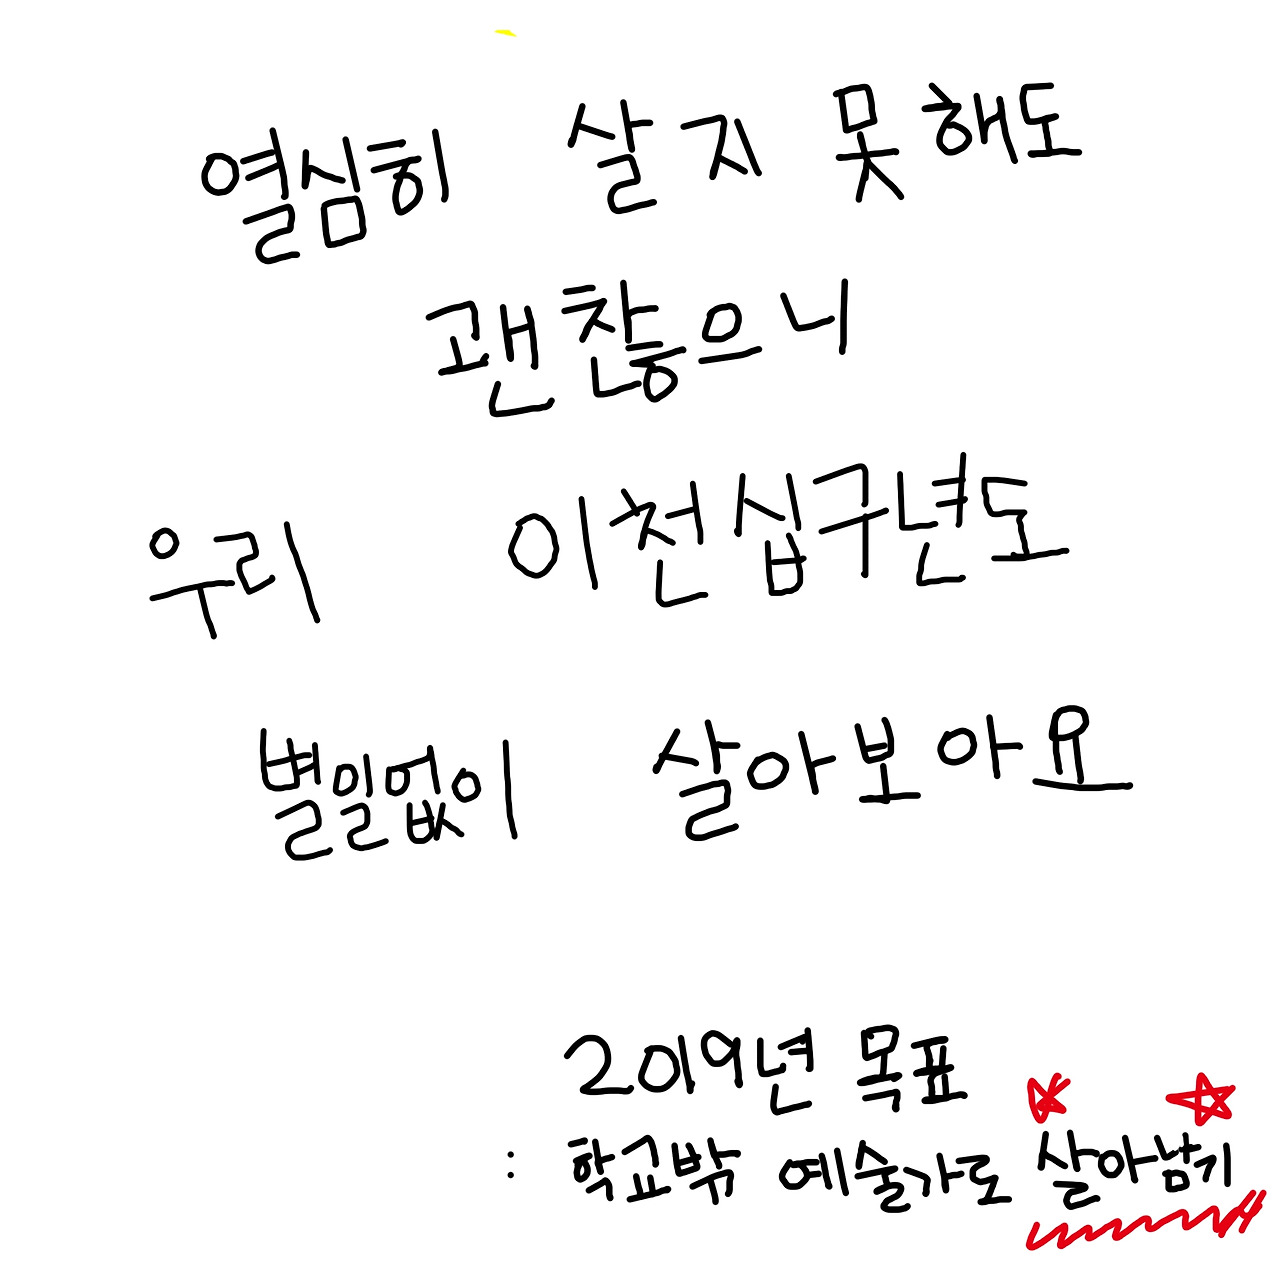 열심히 살지 못해도
괜찮으니
우리 이천십구년도
별일없이 살아보아요
2019년 목표
: 학교밖 예술가로 살아남기